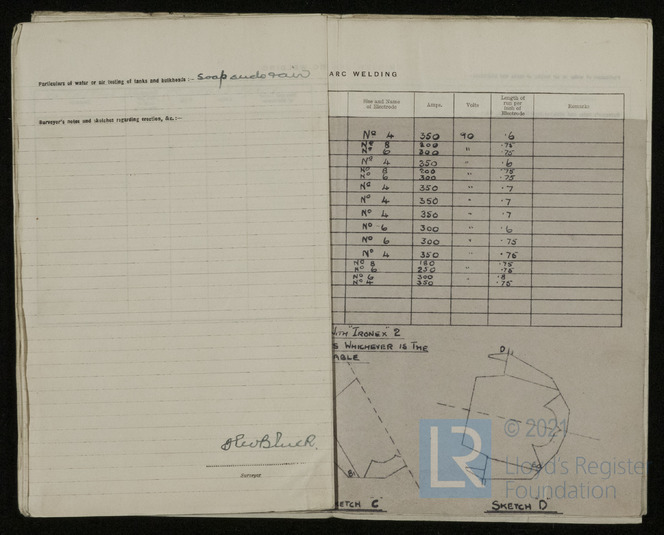 Particulars of water or air testing of tanks and bulkheads :- Soap and air
Surveyor's notes and sketches regarding erection, &c. :-
Surveyor
ARC WELDING
Size and Name of Electrode Amps. Volts Length of run per inch of Electrode Remarks
No 4 350 90 .6
No 8 200 " .75
No 6 300 .75
No 4 350 " .6
No 8 200 " .75
No 6 300 .75
No 4 350 " .7
No 4 350 " .7
No 4 350 " .7
No 6 300 " .6
No 6 300 " .75
No 4 350 " .75
No 8 180 " .75
No 6 250 .75
No 6 300 " .8
No 4 350 .75
WITH "IRONEX" 2
S WHICHEVER IS THE
ABLE
D
ETCH C
SKETCH D
LR
© 2021
Lloyd's Register
Foundation